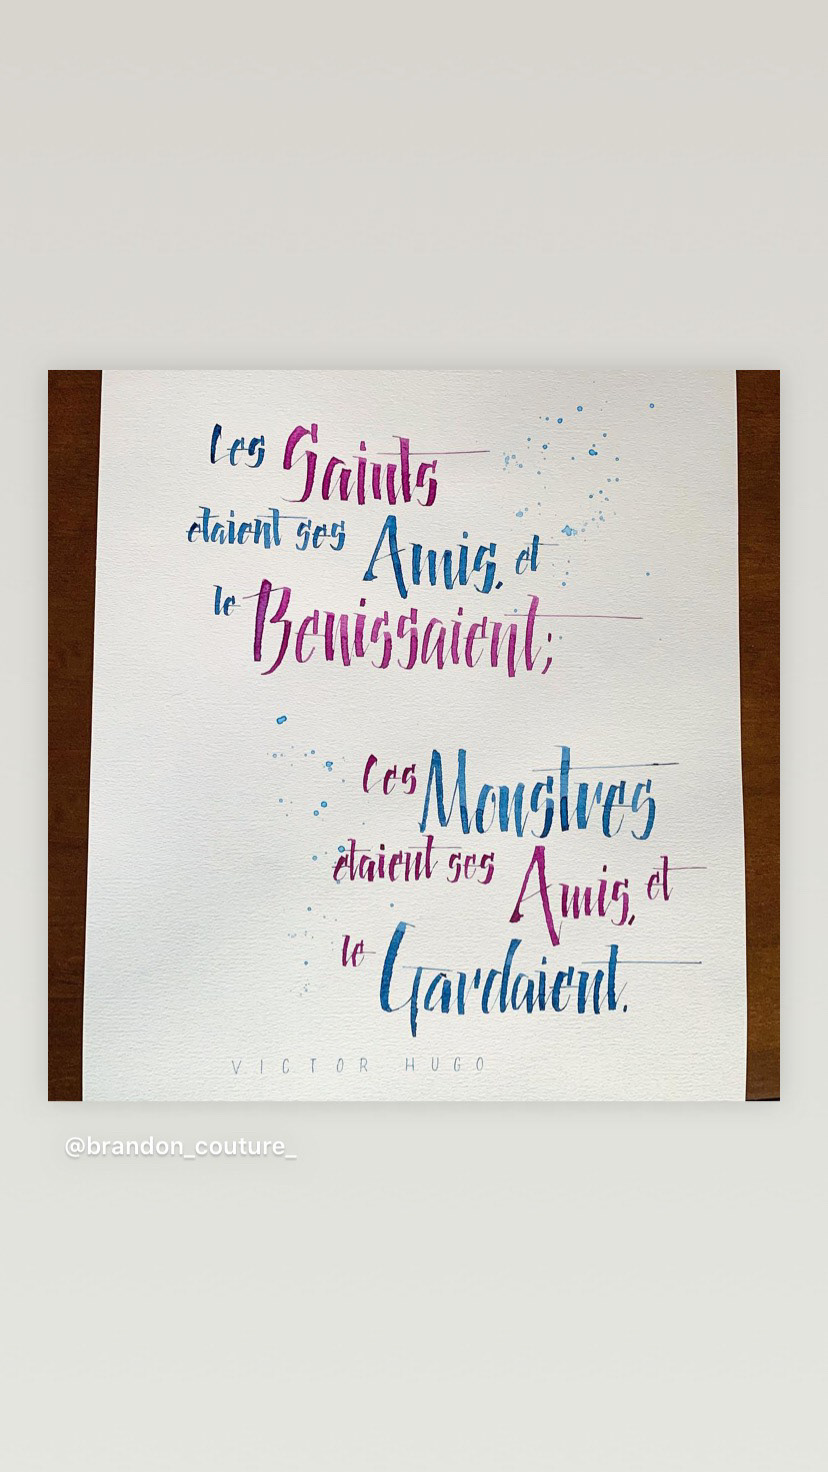 Les Saints
etaient ses Amis, et
le Benissaient;
Les Monstres
etaient ses Amis, et
le Gardaient.
VICTOR HUGO
@brandon_couture_